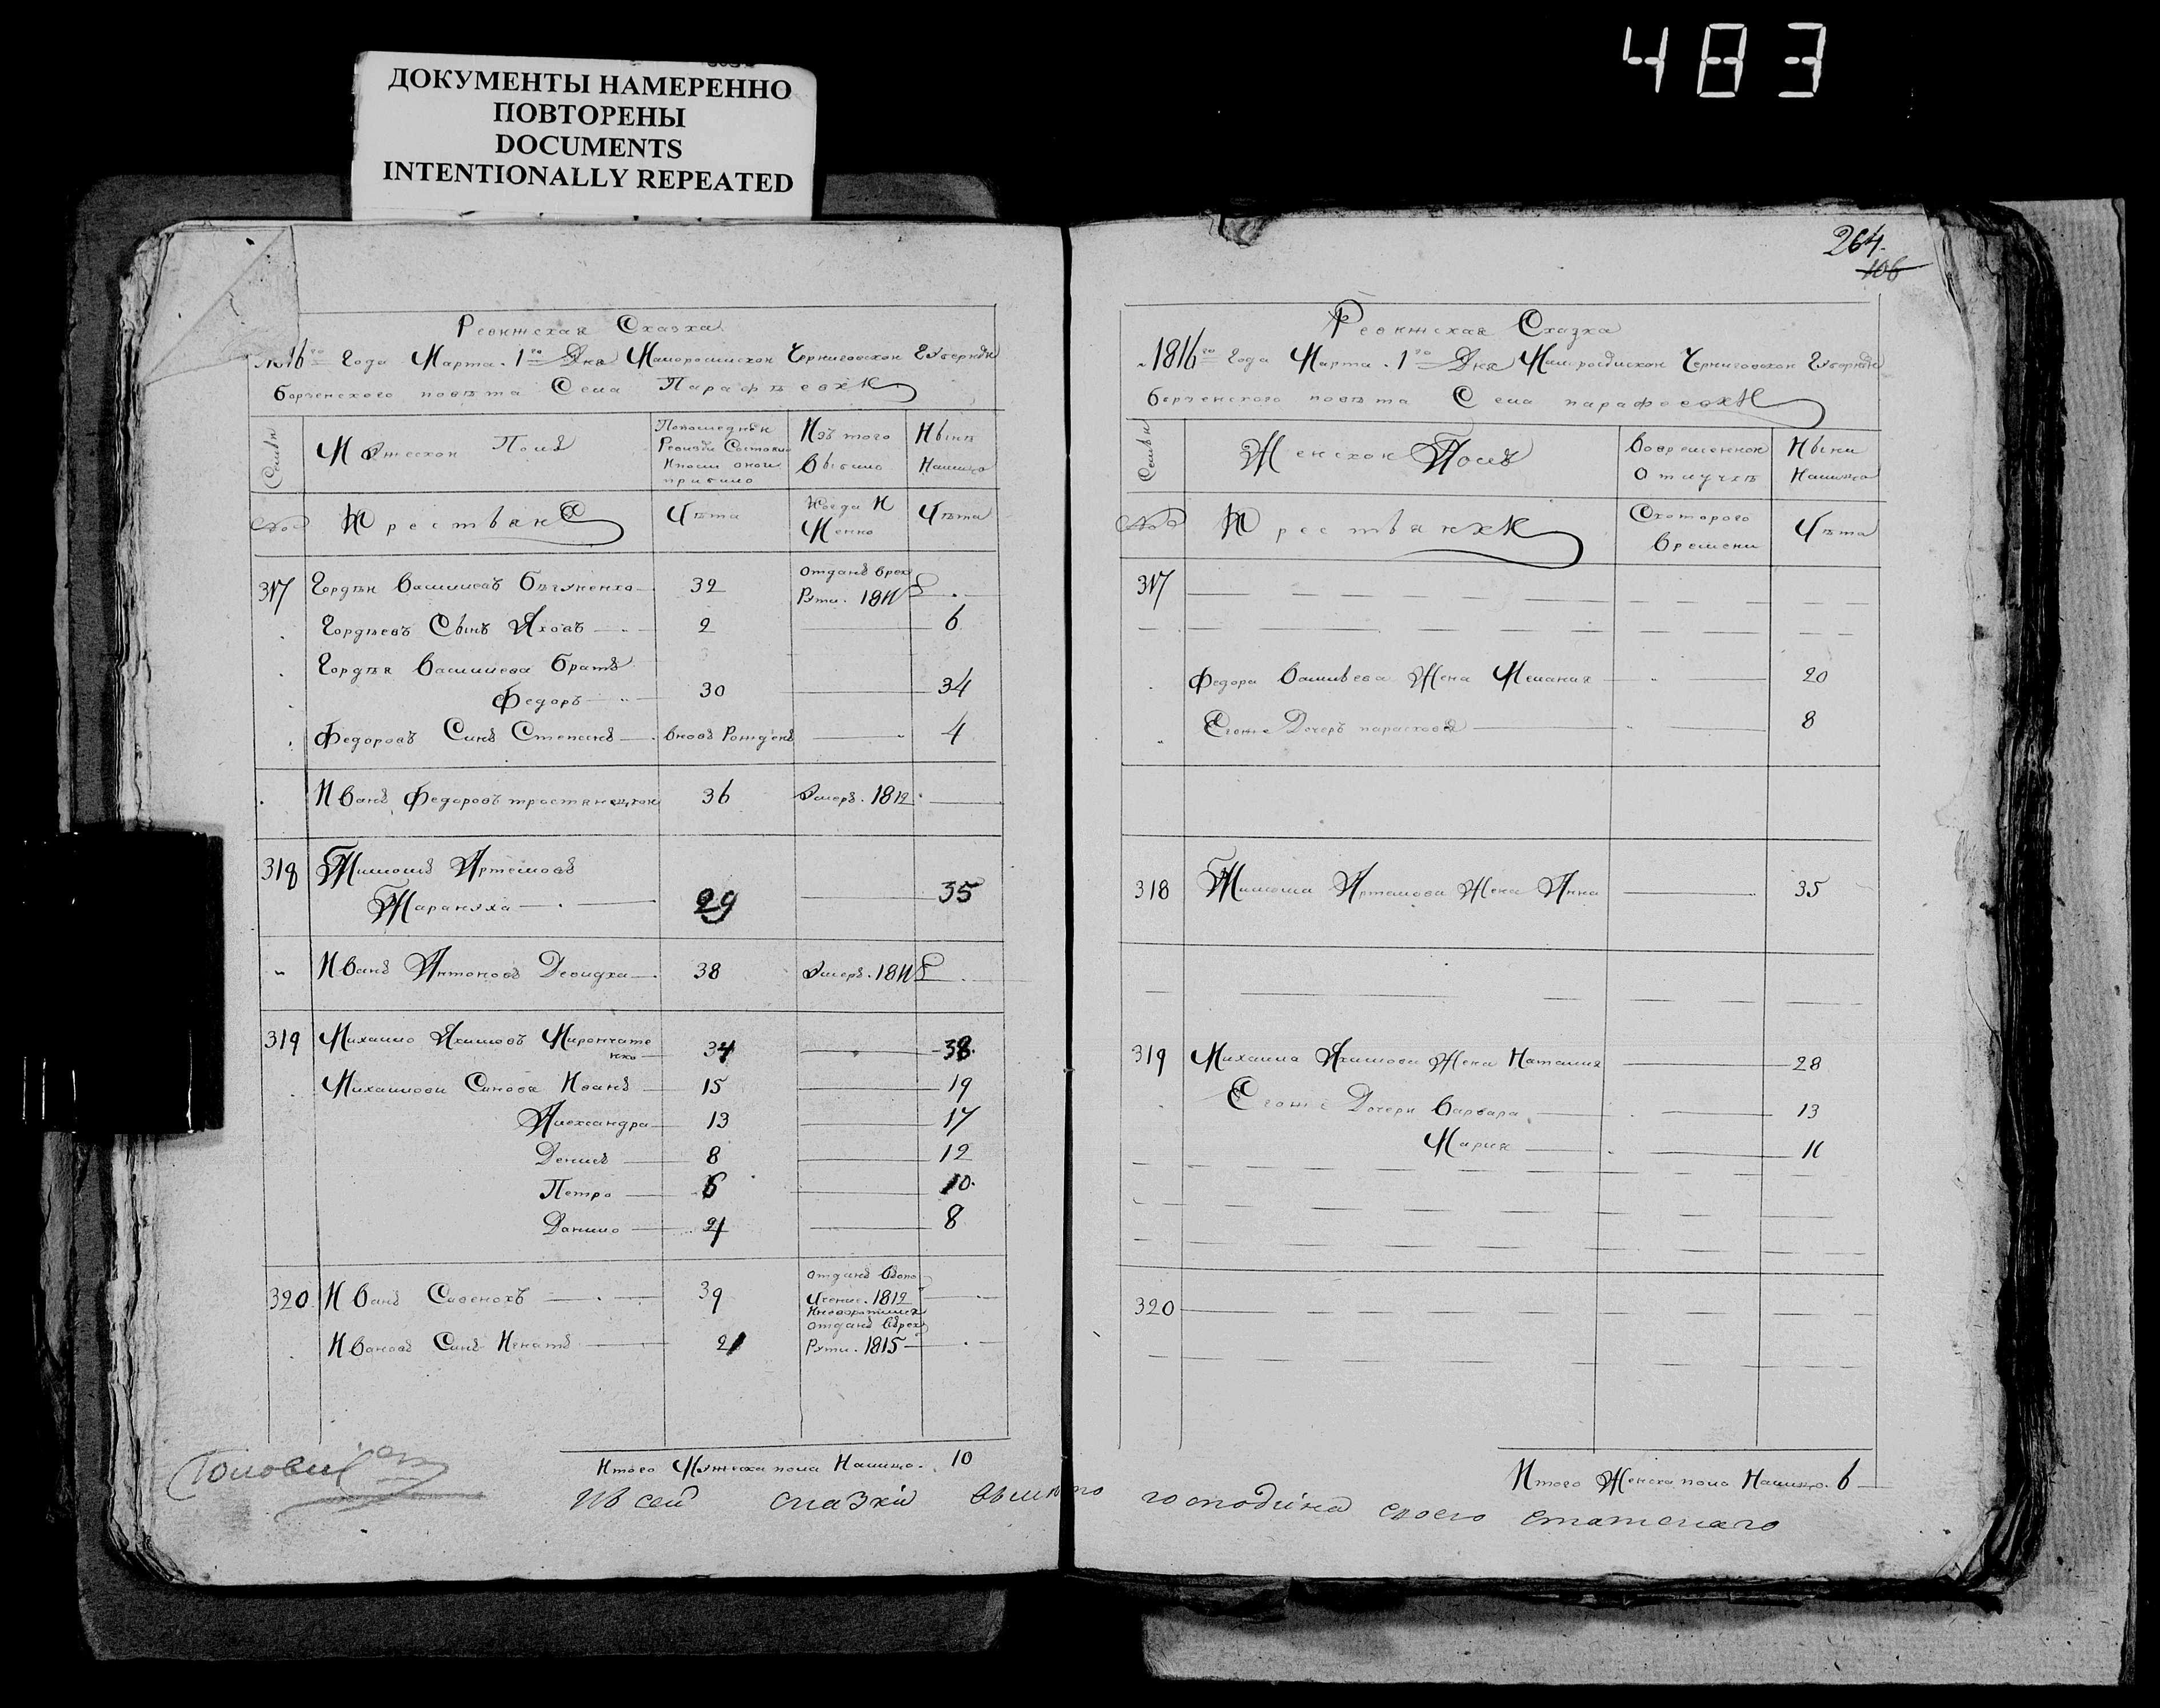 483
ДОКУМЕНТЫ НАМЕРЕННО
ПОВТОРЕНЫ
DOCUMENTS
INTENTIONALLY REPEATED
Ревижская Сказка
1816го Года Марта 1го Дня Малоросийской Черниговской Губернѣи
борзенского повѣта Села Парафѣевки
Семьи
Мужеской Полъ
По последней Ревизѣи Состояло и после оной прибило
Изъ того Выбило
Нынѣ Налицо
№
Крестьяне
Лѣта
Когда и Менно
Лѣта
317 Гордѣй Василиевъ Бѣгуненко 32 Отданъ Врекрути 1811
Гордѣевъ Сынъ Яковъ 2 6
Гордѣя Василиева Братъ
Федоръ 30 34
Федоровъ Синъ Степанъ вновъ Рожденъ 4
Иванъ Федоровъ тростянецкой 36 Умеръ 1812
318 Тимошъ Артемовъ
Тарануха 29 35
Иванъ Антоновъ Девидка 38 Умеръ 1811
319 Михайло Якимовъ Мирончате
нко 34 38
Михайлови Синовя Иванъ 15 19
Александра 13 17
Денисъ 8 12
Петро 6 10
Данило 4 8
320 Иванъ Савенокъ 39 отданъ Вдопо
лчение 1812
Иневозратился
Ивановъ Синъ Игнатъ 21 отданъ Врек
рути 1815
Итого Мужеска пола Налицо 10
264
106
Ревижская Сказка
1816го Года Марта 1го Дня Малоросийской Черниговской Губернѣи
борзенского повѣта Села парафеевки
Семьи
Женской Полъ
Вовременной отлучкѣ
Ныни Налицо
№
Крестьянки
Скоторого Времени
Лѣта
317
Федора Васильева Жена Мелания 20
Егоже Дочеръ параскова 8
318 Тимоша Артемова Жена Анна 35
319 Михаила Якимова Жена Наталия 28
Егоже Дочери Варвара 13
Мария 11
320
Итого Женска пола Налицо 6
Ивсей сказки вместо господина своего статскаго